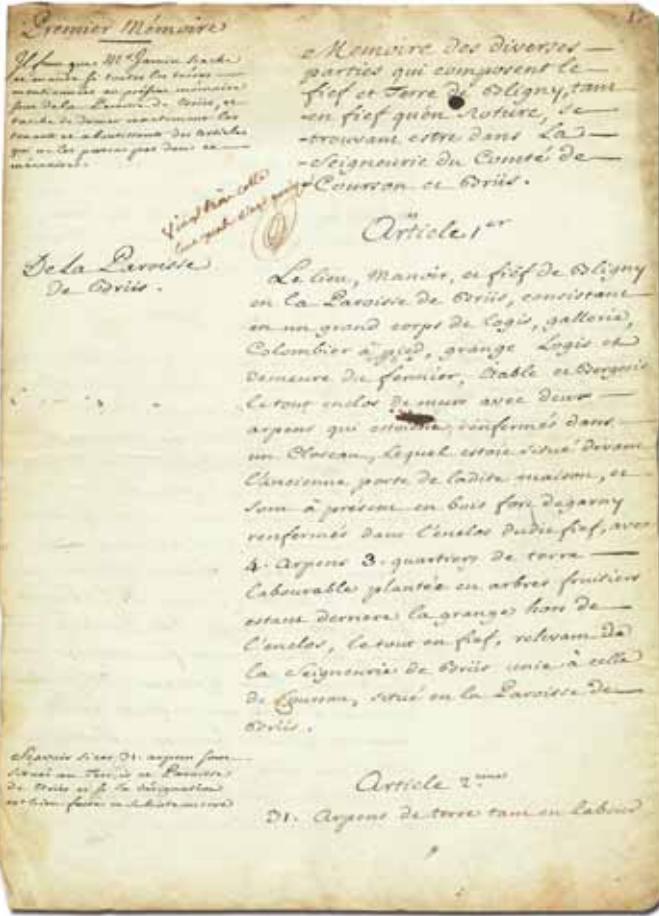 1.
Premier Mémoire
Il faut que Mr Janvin tache
de mande si toutes les terres
mentionnées au présent mémoire
sont de la Paroisse de Briis, et
tache de donner exactement les
tenants et aboutissants des articles
qui ne les portent pas dans ce
mémoire.
Memoire des diverses
parties qui composent le
fief et Terre de Bligny, tant
en fief qu'en Roture, se
trouvant estre dans La
Seigneurie du Comté de
Courson et Briis.
Article 1er
De La Paroisse
de Briis.
Le lieu, Manoir, et fief de Bligny
en la Paroisse de Briis, consistant
en un grand corps de logis, gallerie,
Colombier à pied, grange Logis et
demeure du fermier, Etable et Bergerie
le tout enclos de murs avec deux
arpens qui estoient renfermés dans
un Closeau, lequel estoit situé devant
l'ancienne porte de ladite maison, et
sont à présent en bois fort degarny
renfermés dans l'enclos dudit fief, avec
4. Arpens 3. quartiers de terre
labourable plantée en arbres fruitiers
estant derriere la grange hors de
l'enclos, le tout en fief, relevant de
la Seigneurie de Briis unie à celle
de Courson, situé en la Paroisse de
Briis.
Sçavoir si ces 31. arpens sont
situés au Terroir et Paroisse
de Briis et si la désignation
est bien faite
Article 2eme
31. Arpens de terre tant en labour